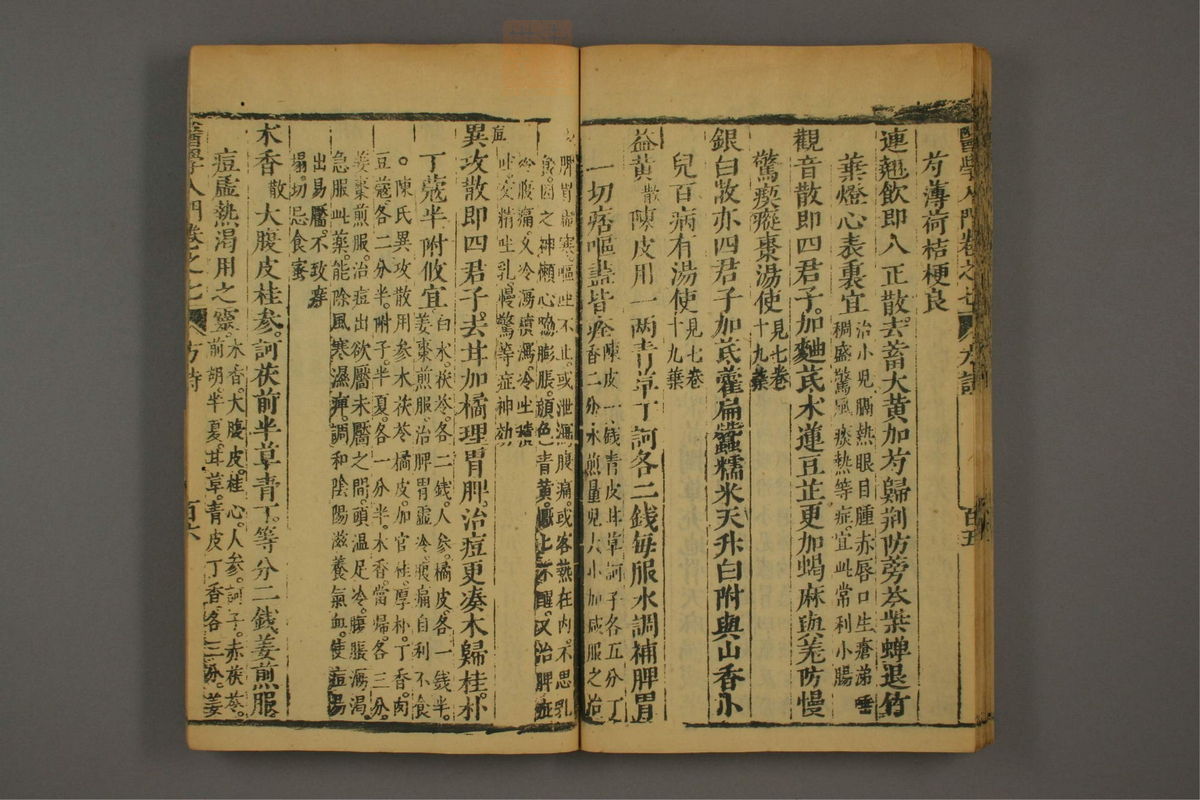 芍薄荷桔梗良
連翹飲即八正散去蓄大黃加芍歸荊防旁芩柴蟬退竹
葉燈心表裏宜治小兒膈熱眼目腫赤唇口生瘡涕唾
稠盛驚風痰熱等症宜此常利小腸
觀音散即四君子加麯芪朮蓮豆芷更加蝎麻與羌防慢
驚瘈瘲棗湯使見七卷
十九葉
銀白散亦四君子加芪藿扁蠶糯米天升白附與山香小
兒百病有湯使見七卷
十九葉
益黃散陳皮用一兩青草丁訶各二錢每服水調補脾胃
一切痞嘔蠱皆痊陳皮一錢青皮甘草訶子各五分丁
香二分水煎量兒大小加減服之治
脾胃虛寒嘔吐不止或泄瀉腹痛或客熱在内不思乳
食因之神懶心脇膨脹顔色青黃
冷腹痛又冷瀉
吐變精吐乳慢驚等症神効
異攻散即四君子去甘加橘理胃脾治痘更凑木歸桂朴
丁蔻半附攸宜白朮茯苓各二錢人參橘皮各一錢半
姜棗煎服治脾胃虛冷腹痛自利不食
陳氏異攻散用參朮茯苓橘皮加官桂厚朴丁香肉
豆蔻各二分半附子半夏各一分半木香當歸各三分
姜棗煎服治痘出欲靨未靨之間頭温足冷腹脹瀉渴
急服此藥能除風寒濕痹調和陰陽滋養氣血使痘
出易靨不致痒
塌切忌食蜜
木香散大腹皮桂參訶茯前半草青丁等分二錢姜煎服
痘虛熱渴用之靈木香大腹皮桂心人參訶子赤茯苓
前胡半夏甘草青皮丁香各三分姜
醫學入門卷之七
方詩
百六